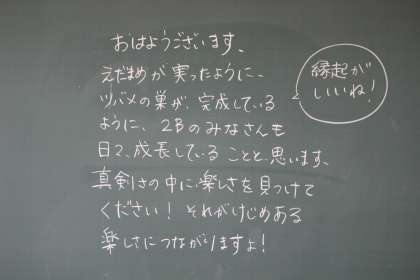 おはようございます、
えだまめが実ったように、
ツバメの巣が、完成している
ように、2Bのみなさんも
日々、成長していることと、思います、
真剣さの中に、楽しさを見つけて
ください！ それがけじめある
楽しさにつながりますよ！
縁起が
いいね！